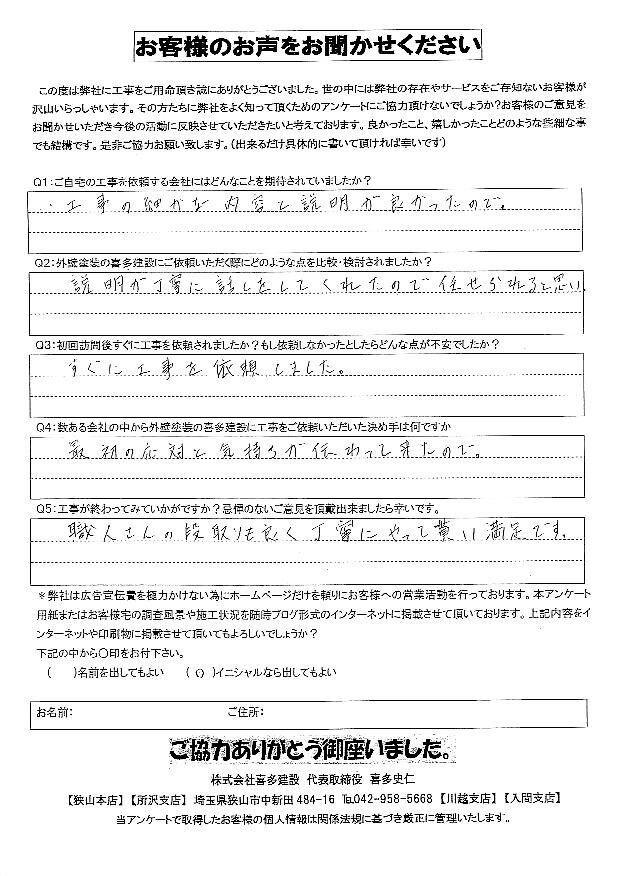 お客様のお声をお聞かせください
この度は弊社に工事をご用命頂き誠にありがとうございました。世の中には弊社の存在やサービスをご存知ないお客様が
沢山いらっしゃいます。その方たちに弊社をよく知って頂くためのアンケートにご協力頂けないでしょうか?お客様のご意見を
お聞かせいただき今後の活動に反映させていただきたいと考えております。良かったこと、嬉しかったことどのような些細な事
でも結構です。是非ご協力お願い致します。(出来るだけ具体的に書いて頂ければ幸いです)
Q1:ご自宅の工事を依頼する会社にはどんなことを期待されていましたか?
・工事の細かな内容と説明が良かったので。
Q2:外壁塗装の喜多建設にご依頼いただく際にどのような点を比較・検討されましたか?
説明が丁寧に話しをしてくれたので任せられると思い
Q3:初回訪問後すぐに工事を依頼されましたか?もし依頼しなかったとしたらどんな点が不安でしたか?
すぐに工事を依頼しました。
Q4:数ある会社の中から外壁塗装の喜多建設に工事をご依頼いただいた決め手は何ですか
最初の応対と気持ちが伝わって来たので。
Q5:工事が終わってみていかがですか?忌憚のないご意見を頂戴出来ましたら幸いです。
職人さんの段取りも良く丁寧にやって貰い満足です。
*弊社は広告宣伝費を極力かけない為にホームページだけを頼りにお客様への営業活動を行っております。本アンケート
用紙またはお客様宅の調査風景や施工状況を随時ブログ形式のインターネットに掲載させて頂いております。上記内容をイ
ンターネットや印刷物に掲載させて頂いてもよろしいでしょうか?
下記の中から〇印をお付下さい。
( )名前を出してもよい (○)イニシャルなら出してもよい
お名前: ご住所:
ご協力ありがとう御座いました。
株式会社喜多建設 代表取締役 喜多史仁
【狭山本店】【所沢支店】 埼玉県狭山市中新田484-16 ℡042-958-5668 【川越支店】【入間支店】
当アンケートで取得したお客様の個人情報は関係法規に基づき厳正に管理いたします。